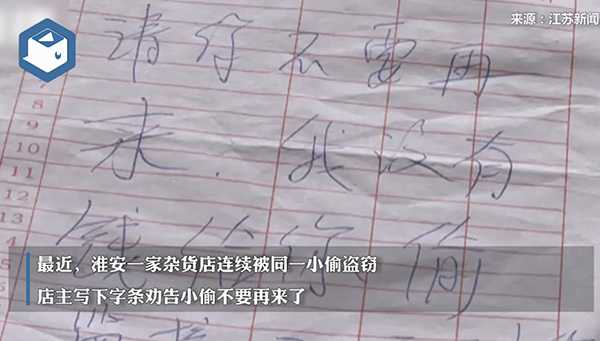 来源：江苏新闻
请你不要再
8
9
来，我没有
10
11
12
13
钱给你偷
最近，淮安一家杂货店连续被同一小偷盗窃
店主写下字条劝告小偷不要再来了